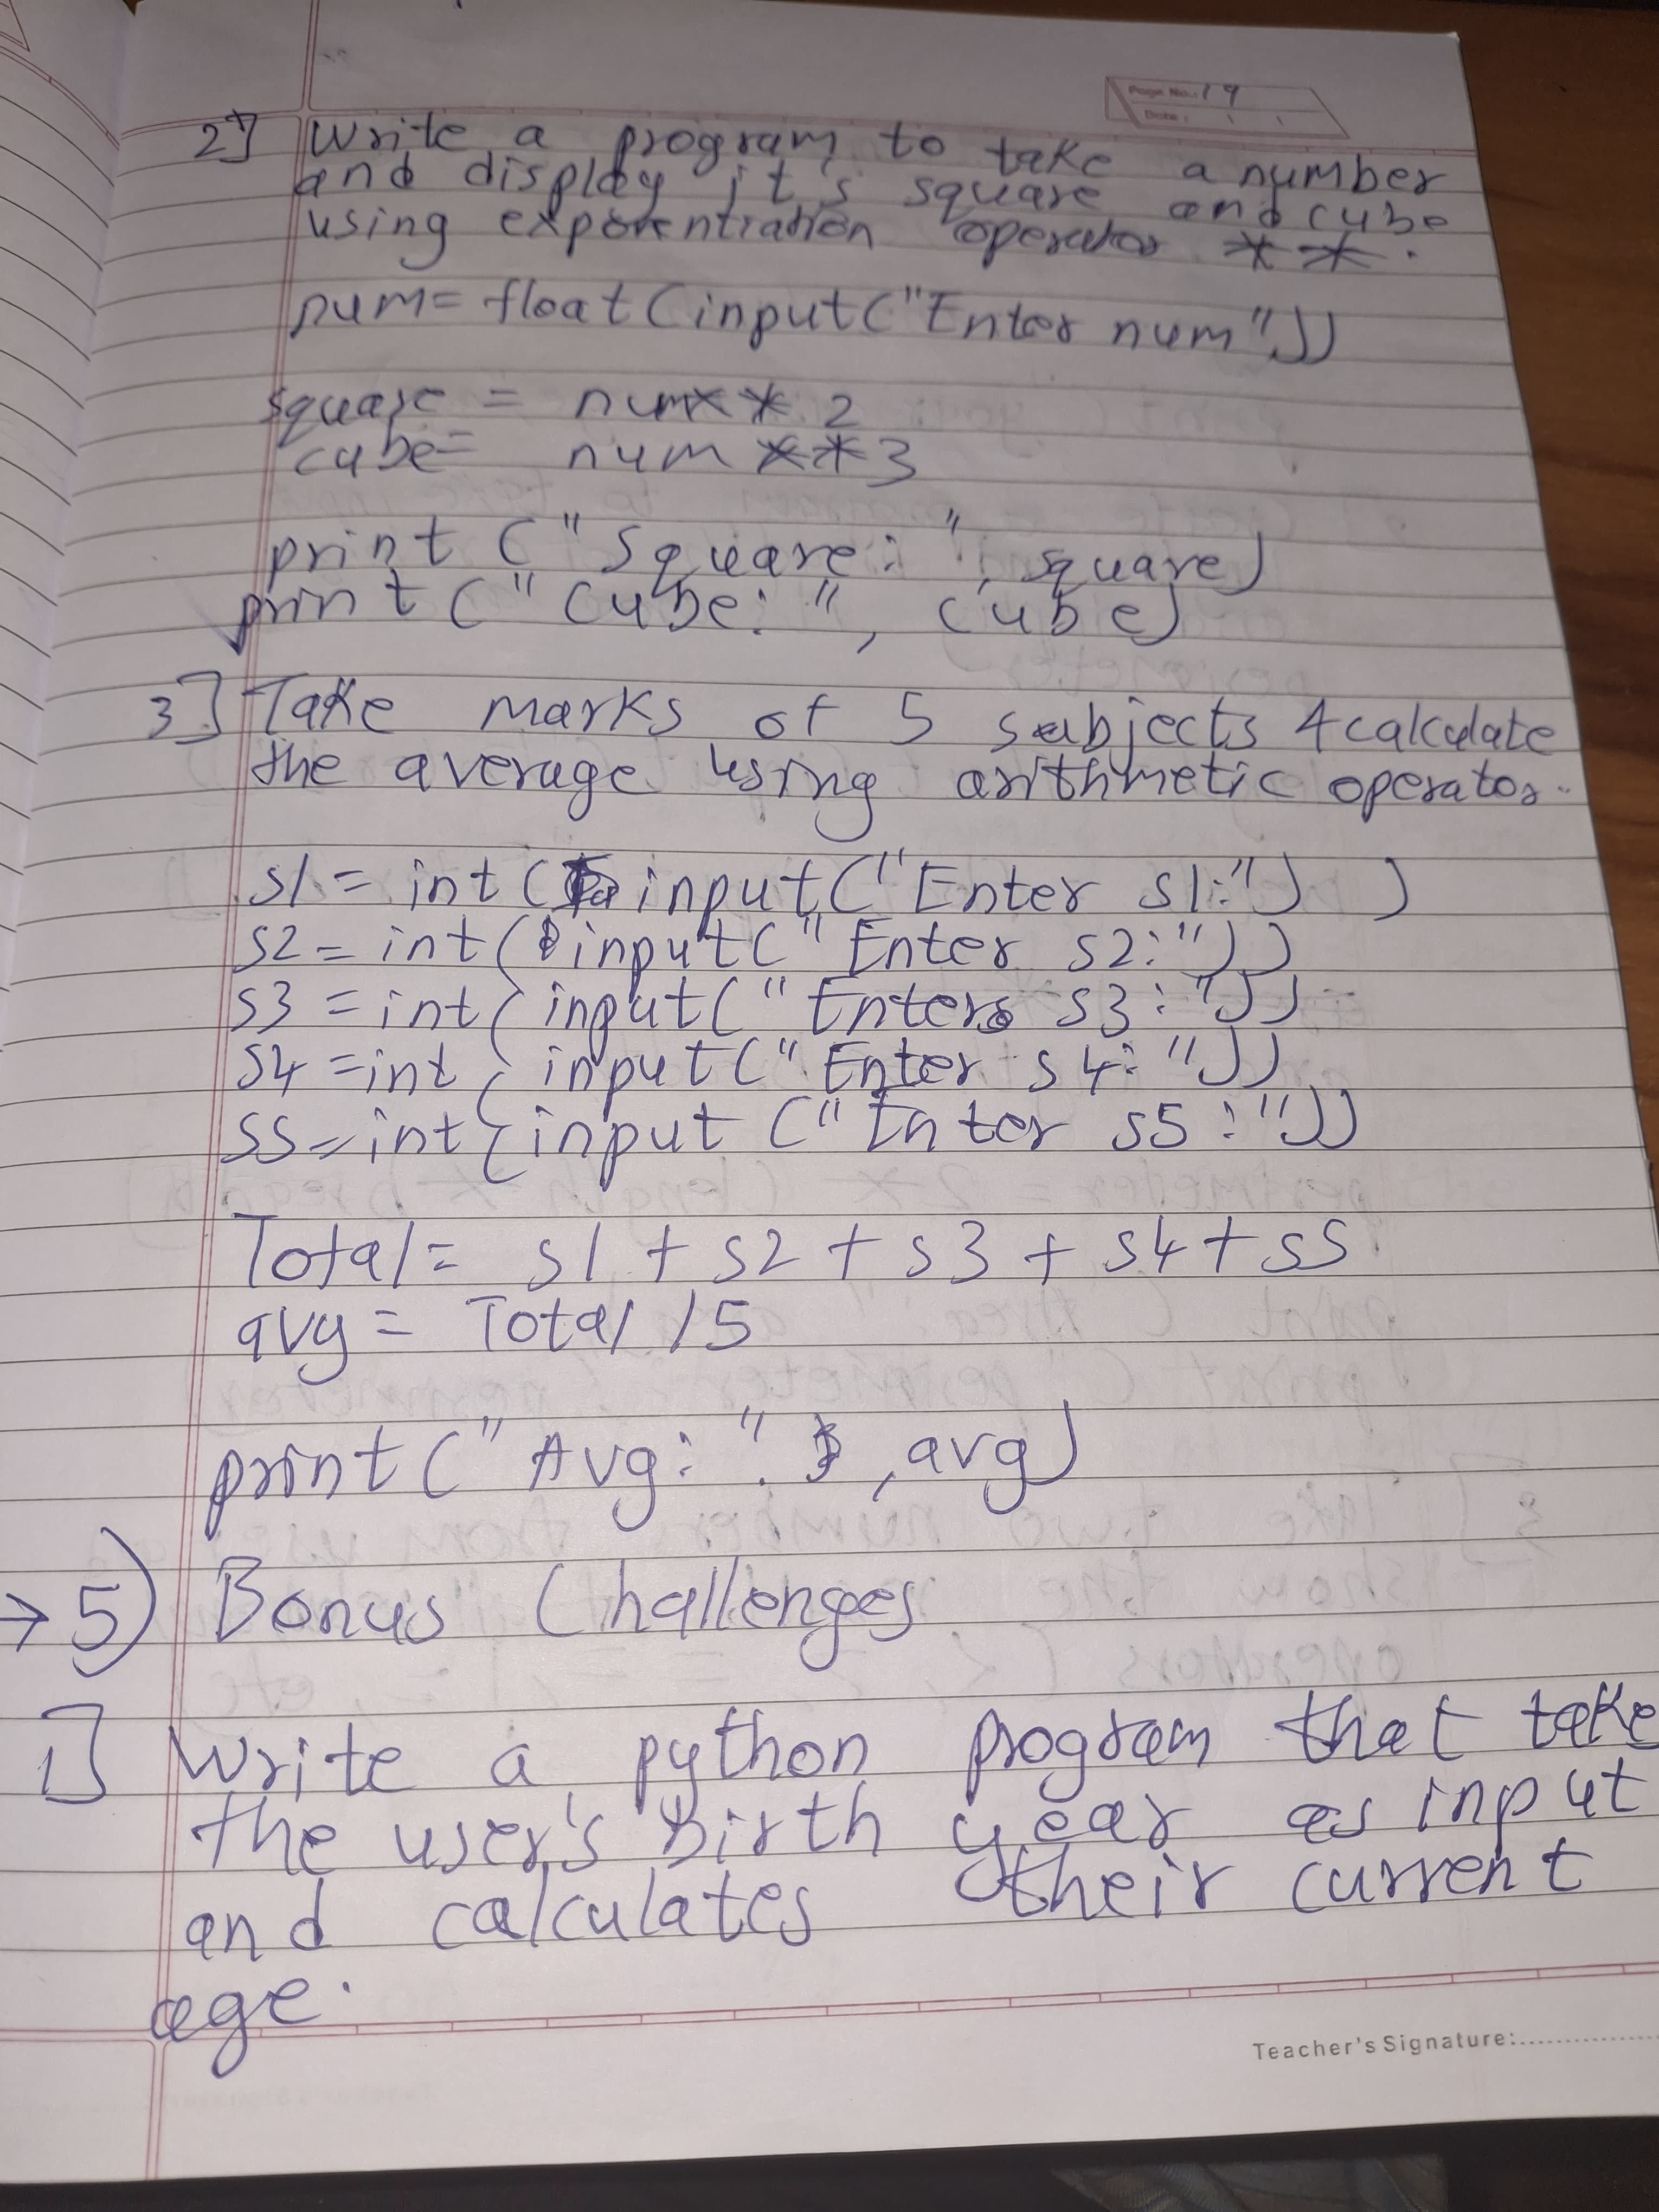 Page No.: 19
Date:
2] Write a program to take a number
and display it's square and cube
using exponentiation operator **.
num= float(input("Enter num"))
square = num** 2
cube= num **3
print ("Square: ", square)
print ("Cube: ", cube)
3] Take marks of 5 subjects & calculate
the average using arithmetic operator.
s1 = int ( input("Enter s1:") )
s2 = int( input(" Enter s2:"))
s3 = int( input(" Enter s3 : "))
s4 =int( input(" Enter s4: "))
s5=int(input ("Enter s5 :"))
Total= s1 + s2 + s3 + s4+s5
avg = Total /5
print(" Avg: " ,avg)
→ 5) Bonus Challenges
1] Write a python program that take
the user's birth year as input
and calculates their current
age.
Teacher's Signature:................